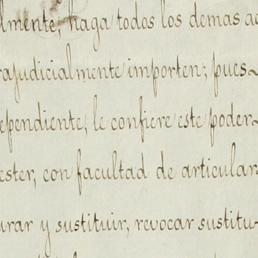 lmente, haga todos los demas ac
rajudicialmente importen; pues~
ependiente, le confiere este poder~
ester, con facultad de articular
urar y sustituir, revocar sustitu-